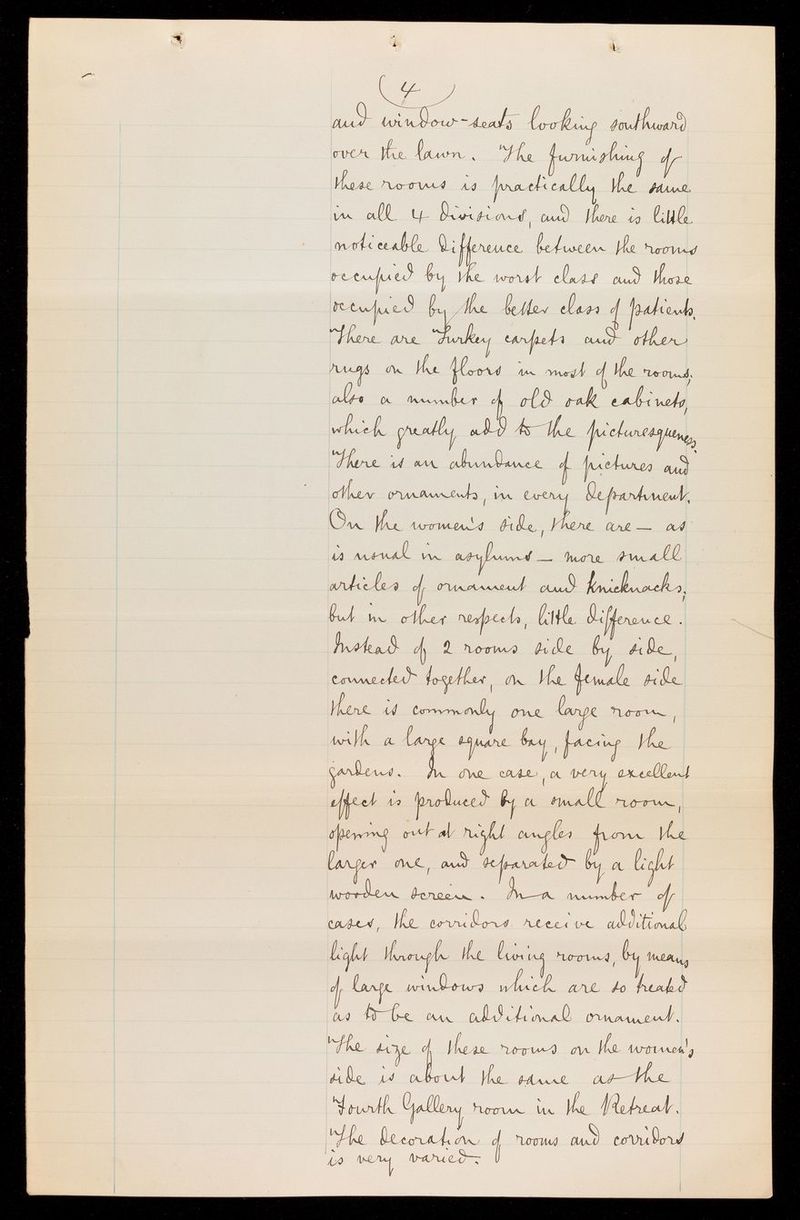 4
and window-seats looking southward
over the lawn. The furnishing of
these rooms is practically the same
in all 4 divisions, and there is little
noticeable difference between the rooms
occupied by the worst class and those
occupied by the better class of patients.
There are Turkey carpets and other
rugs on the floors in most of the rooms;
also a number of old oak cabinets,
which greatly add to the picturesqueness.
There is an abundance of pictures and
other ornaments, in every department.
On the women's side, there are — as
is usual in asylums — more small
articles of ornament and knicknacks;
but in other respects, little difference.
Instead of 2 rooms side by side,
connected together, on the female side
there is commonly one large room,
with a large square bay, facing the
gardens. In one case, a very excellent
effect is produced by a small room,
opening out at right angles from the
larger one, and separated by a light
wooden screen. In a number of
cases, the corridors receive additional
light through the living rooms, by means
of large windows which are so treated
as to be an additional ornament.
The size of these rooms on the women's
side is about the same as the
Fourth Gallery room in the Retreat.
The decoration of rooms and corridors
is very varied.